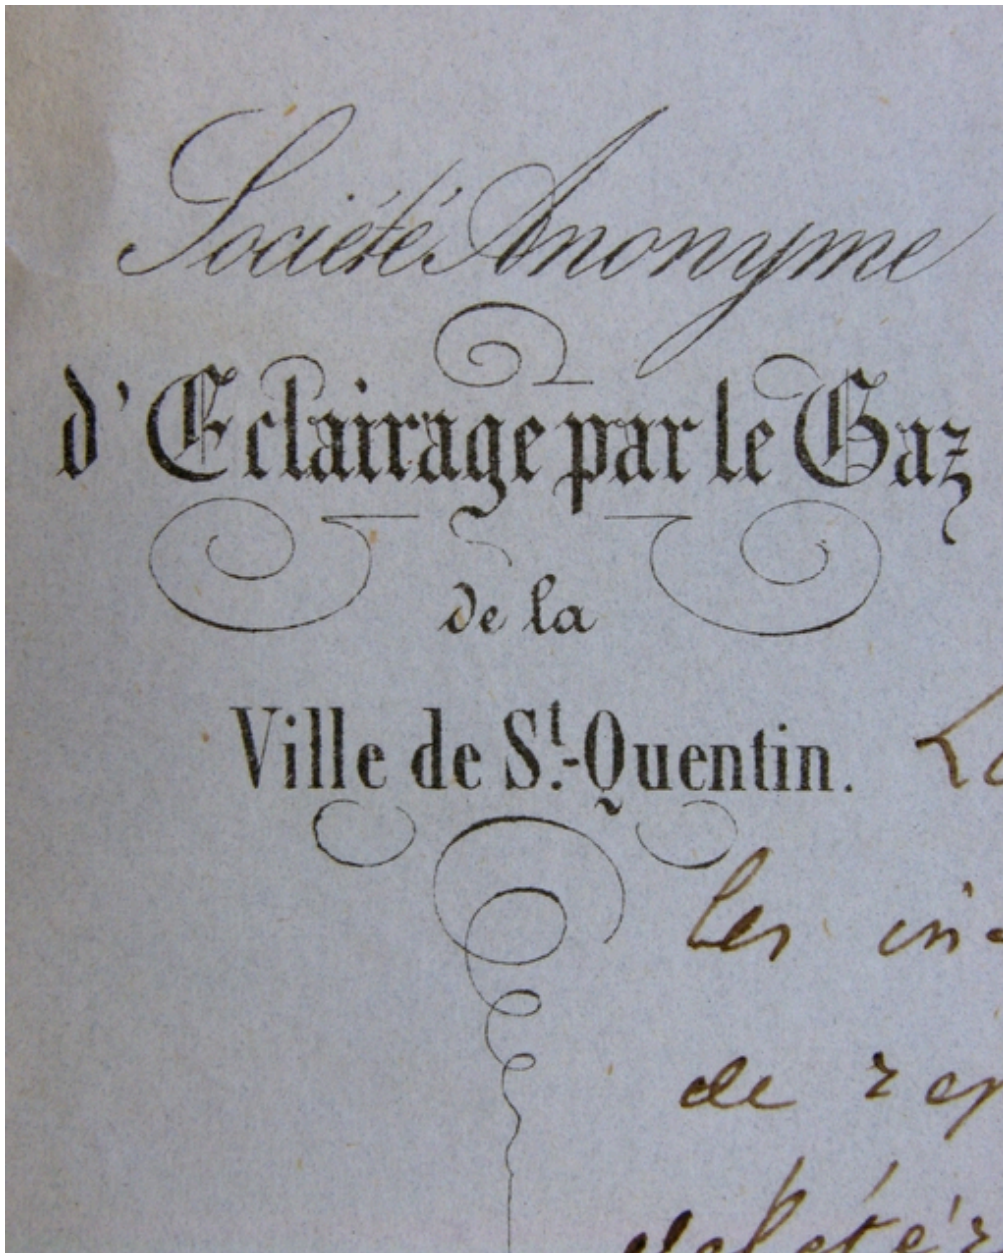 Société Anonyme
d'Eclairage par le Gaz
de la
Ville de St.-Quentin.
les
de